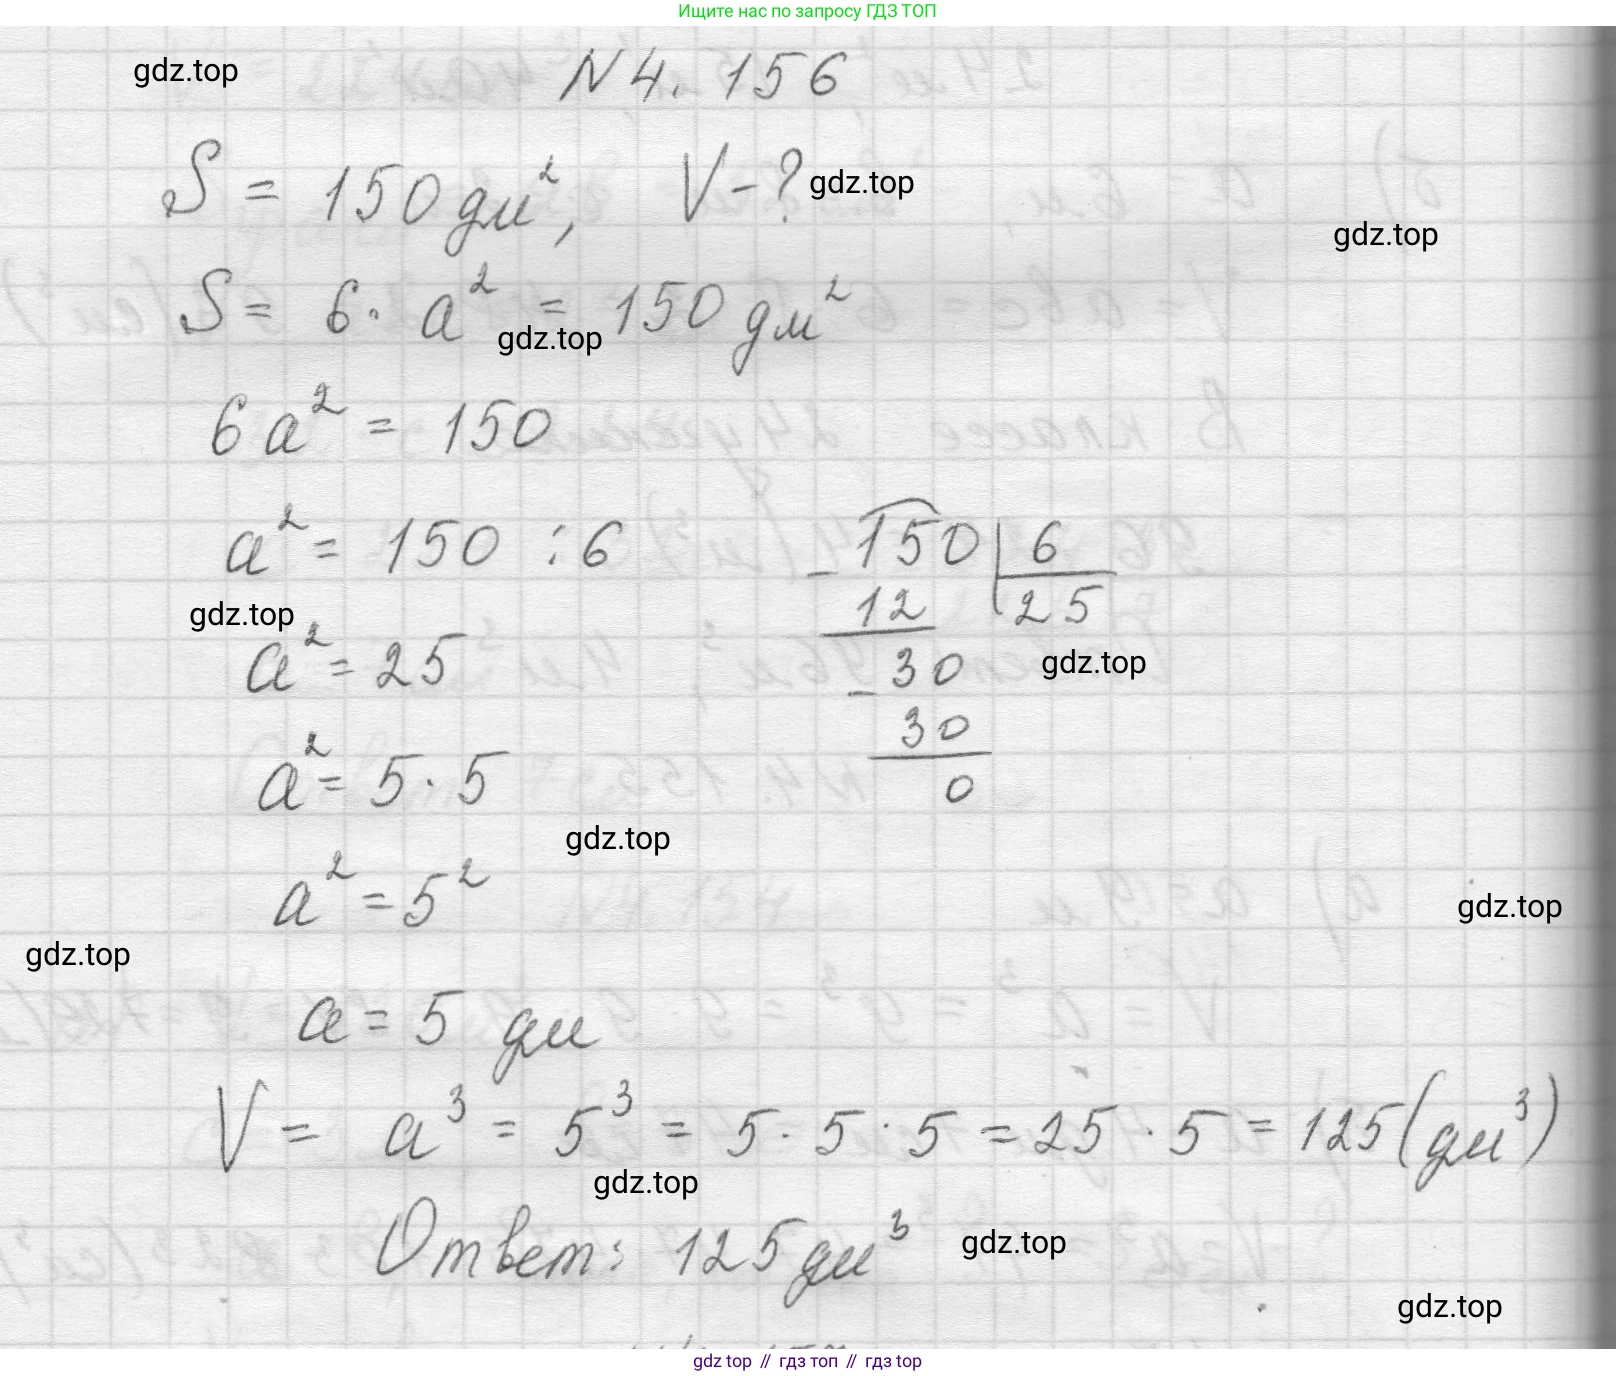 Ищите нас по запросу ГДЗ ТОП
gdz.top
N 4. 156
S = 150 дм², V - ? gdz.top
gdz.top
S = 6 · a² = 150 дм²
gdz.top
6a² = 150
a² = 150 : 6
150 | 6
- 12 25
gdz.top
a² = 25
30 gdz.top
- 30
0
a² = 5 · 5
gdz.top
a² = 5²
gdz.top
gdz.top
a = 5 дм
V = a³ = 5³ = 5 · 5 · 5 = 25 · 5 = 125 (дм³)
gdz.top
Ответ: 125 дм³ gdz.top
gdz.top
gdz top // гдз топ // гдз top